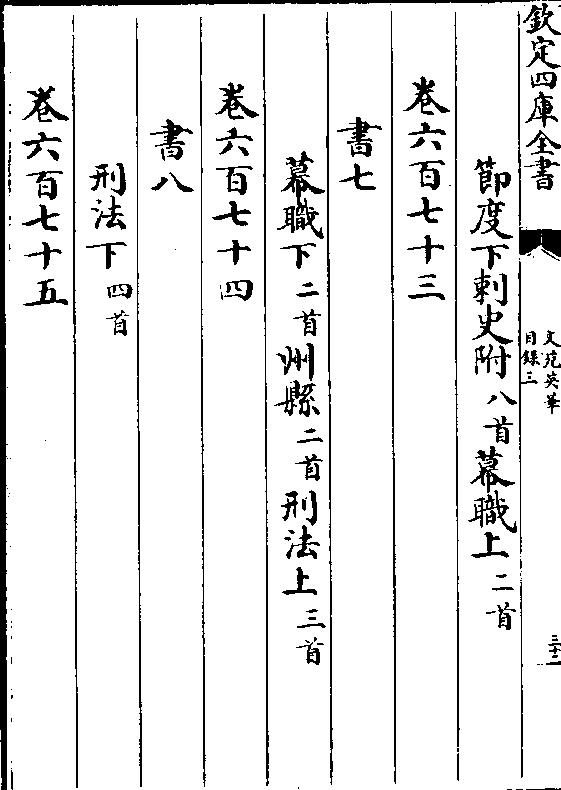 欽定四庫全書
文苑英華
目錄三
三十二
節度下刺史附八首幕職上二首
卷六百七十三
書七
幕職下二首州縣二首刑法上三首
卷六百七十四
書八
刑法下四首
卷六百七十五